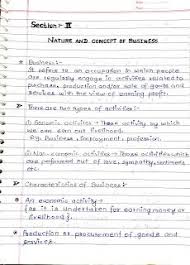 Section - II
NATURE AND CONCEPT OF BUSINESS
* Business:-
It refers to an occupation in which people
are regularly engage in activities related to
purchase, production and/or sale of goods and
services with the view of earning profit.
* There are two types of activities:-
(i) Economic activities → Those activity by which
we can earn livelihood.
Eg. Business, employment, profession.
(ii) Non-economic activities → Those activities which
are performed out of love, sympathy, sentiments
etc.
* Characteristics of Business:-
* An economic activity:-
(as it is undertaken for earning money or
livelihood).
* Production or procurement of goods and
services.